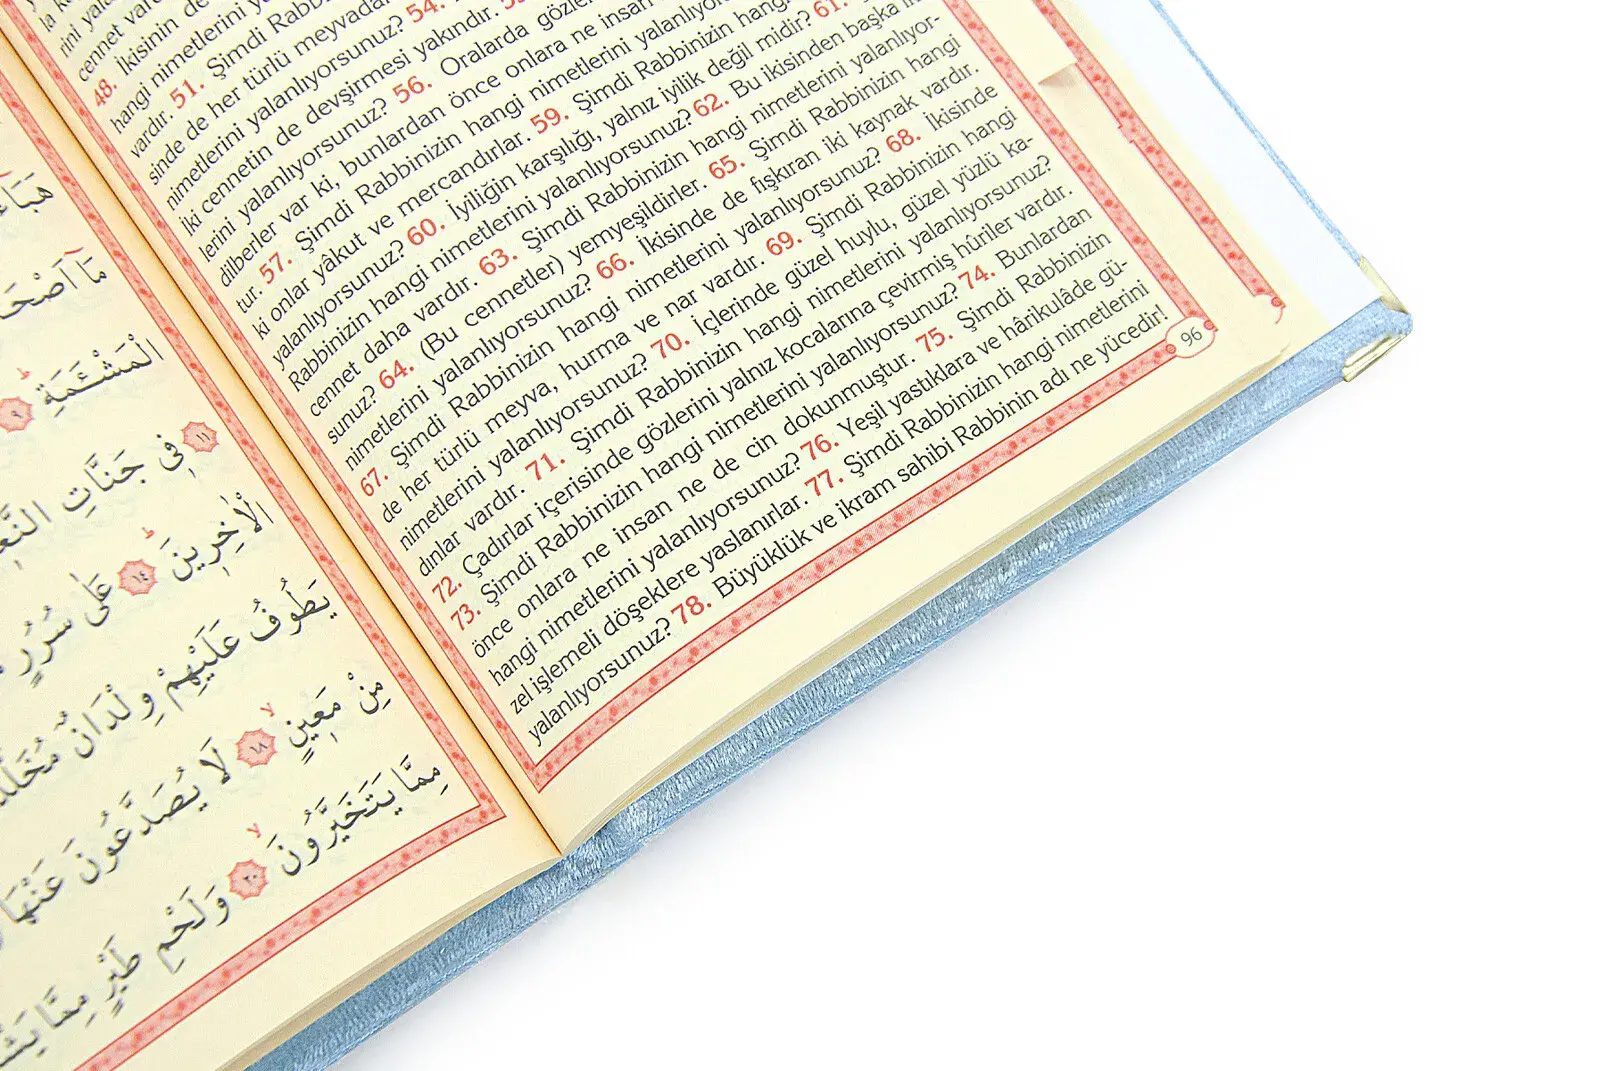 cennet
48. İkisinin de
hangi nimetlerini
vardır. 51. Şimdi
sinde de her türlü
nimetlerini yalanlıyorsunuz? 54.
İki cennetin de devşirmesi yakındır.
lerini yalanlıyorsunuz? 56. Oralarda
dilberler var ki, bunlardan önce onlara ne insan
tur. 57. Şimdi Rabbinizin hangi nimetlerini
ki onlar yâkut ve mercandırlar. 59. Şimdi Rabbinizin hangi
yalanlıyorsunuz? 60. İyiliğin karşılığı, yalnız iyilik değil midir? 61.
Rabbinizin hangi nimetlerini yalanlıyorsunuz? 62. Bu ikisinden başka
cennet daha vardır. 63. Şimdi Rabbinizin hangi nimetlerini yalanlıyor-
sunuz? 64. (Bu cennetler) yemyeşildirler. 65. Şimdi Rabbinizin hangi
nimetlerini yalanlıyorsunuz? 66. İkisinde de fışkıran iki kaynak vardır.
67. Şimdi Rabbinizin hangi nimetlerini yalanlıyorsunuz? 68. İkisinde
de her türlü meyva, hurma ve nar vardır. 69. Şimdi Rabbinizin hangi
nimetlerini yalanlıyorsunuz? 70. İçlerinde güzel huylu, güzel yüzlü ka-
dınlar vardır. 71. Şimdi Rabbinizin hangi nimetlerini yalanlıyorsunuz?
72. Çadırlar içerisinde gözlerini yalnız kocalarına çevirmiş hûriler vardır.
73. Şimdi Rabbinizin hangi nimetlerini yalanlıyorsunuz? 74. Bunlardan
önce onlara ne insan ne de cin dokunmuştur. 75. Şimdi Rabbinizin
hangi nimetlerini yalanlıyorsunuz? 76. Yeşil yastıklara ve hârikulâde gü-
zel işlemeli döşeklere yaslanırlar. 77. Şimdi Rabbinizin hangi nimetlerini
yalanlıyorsunuz? 78. Büyüklük ve ikram sahibi Rabbinin adı ne yücedir!
96
مَٓا اَصْحَا
الْمَشْـَٔمَةِ ٩
١١ ف۪ي جَنَّاتِ
الْاٰخِر۪ينَ ١٤ عَلٰى سُرُرٍ
يَطُوفُ عَلَيْهِمْ وِلْدَانٌ
مِنْ مَع۪ينٍ ١٨ لَا يُصَدَّعُونَ عَنْهَا
مِمَّا يَتَخَيَّرُونَ ٢٠ وَلَحْمِ طَيْرٍ مِمَّا